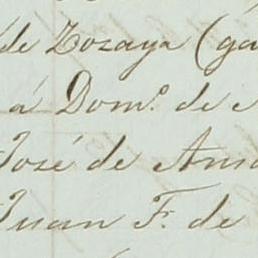 de Zozaya (ga
á Domº. de
José de Ans
Juan F. de